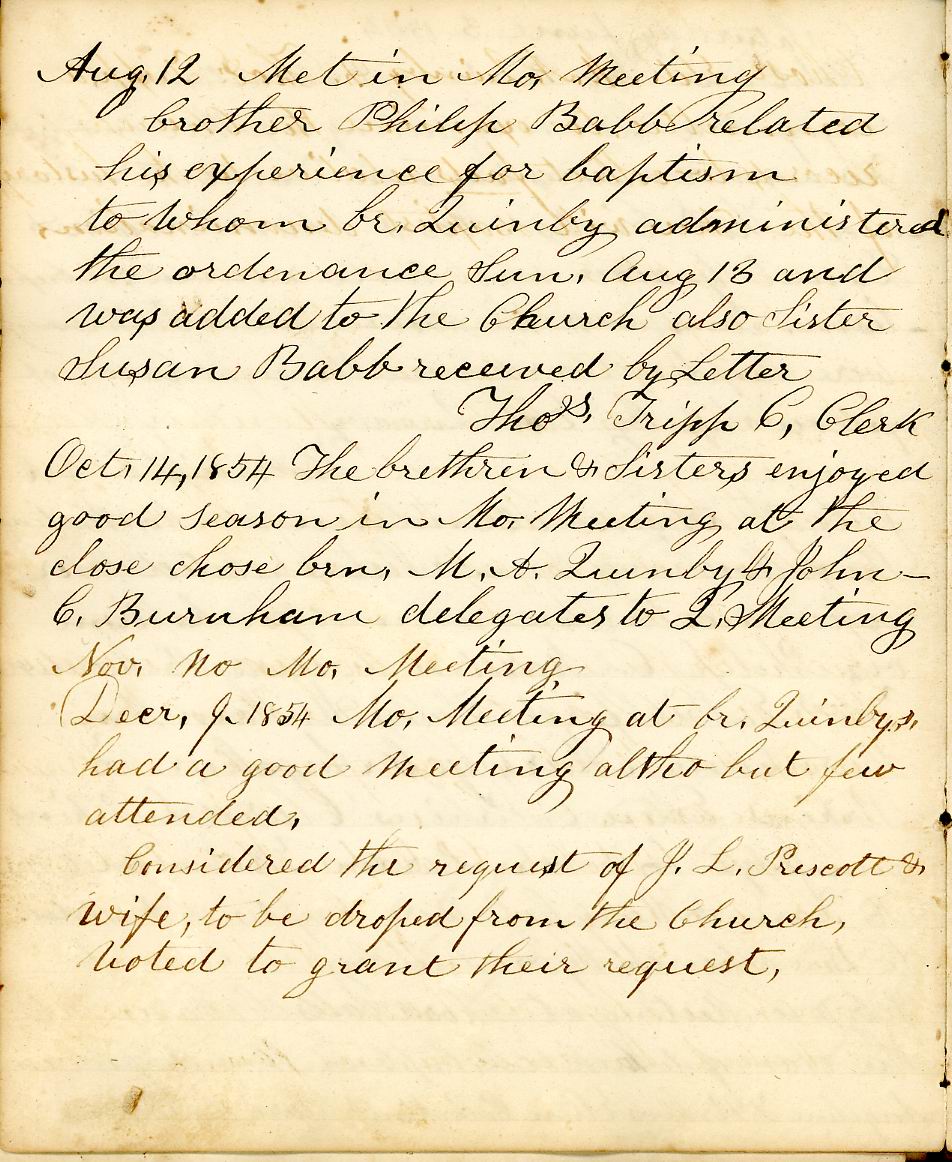 Aug. 12 Met in Mo. Meeting
brother Philip Babb related
his experience for baptism
to whom br. Quinby administered
the ordenance Sun. Aug 13 and
was added to the Church also Sister
Susan Babb received by Letter
Thos. Tripp C. Clerk
Oct. 14, 1854 The brethren & Sisters enjoyed
good season in Mo. Meeting at the
close chose brn. M. A. Quinby & John
C. Burnham delegates to Q. Meeting
Nov. no Mo. Meeting
Decr. 9. 1854 Mo. Meeting at br. Quinbys.
had a good meeting altho but few
attended.
Considered the request of J. L. Prescott &
wife, to be droped from the Church,
Voted to grant their request,